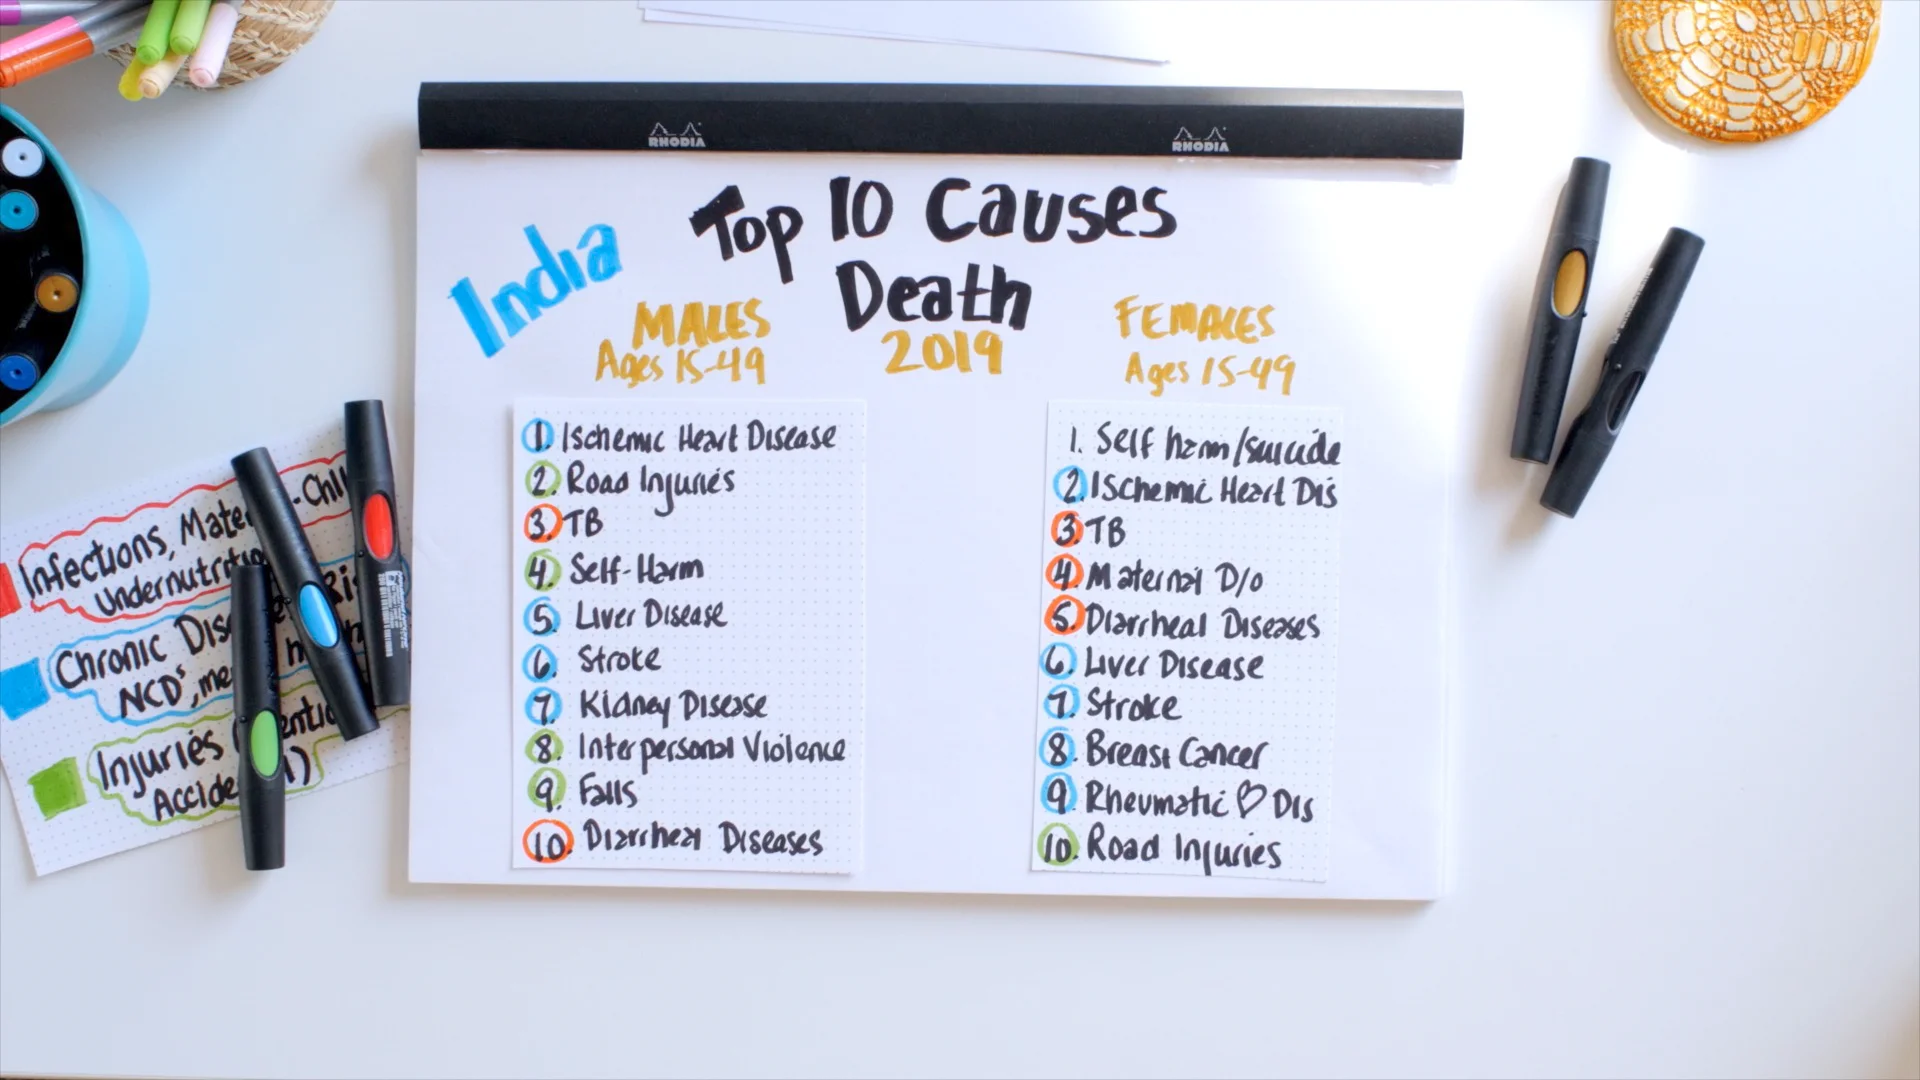 RHODIA
RHODIA
India
Top 10 Causes
Death
2019
MALES
Ages 15-49
1. Ischemic Heart Disease
2. Road Injuries
3. TB
4. Self-Harm
5. Liver Disease
6. Stroke
7. Kidney Disease
8. Interpersonal Violence
9. Falls
10. Diarrheal Diseases
FEMALES
Ages 15-49
1. Self harm/suicide
2. Ischemic Heart Dis
3. TB
4. Maternal D/o
5. Diarrheal Diseases
6. Liver Disease
7. Stroke
8. Breast Cancer
9. Rheumatic ♡ Dis
10. Road Injuries
Infections,
Chronic
NCD's,
Injuries